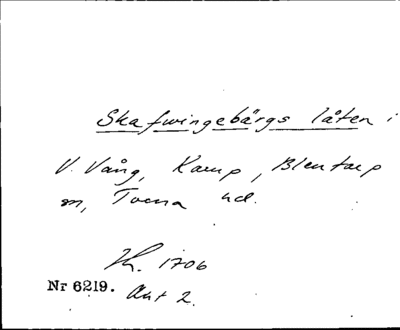 Skafwingebärgs låten i
V. Vång, Karup, Blentarp
m, Torna hd.
Kr. 1706
Nr 6219.
Akt 2.